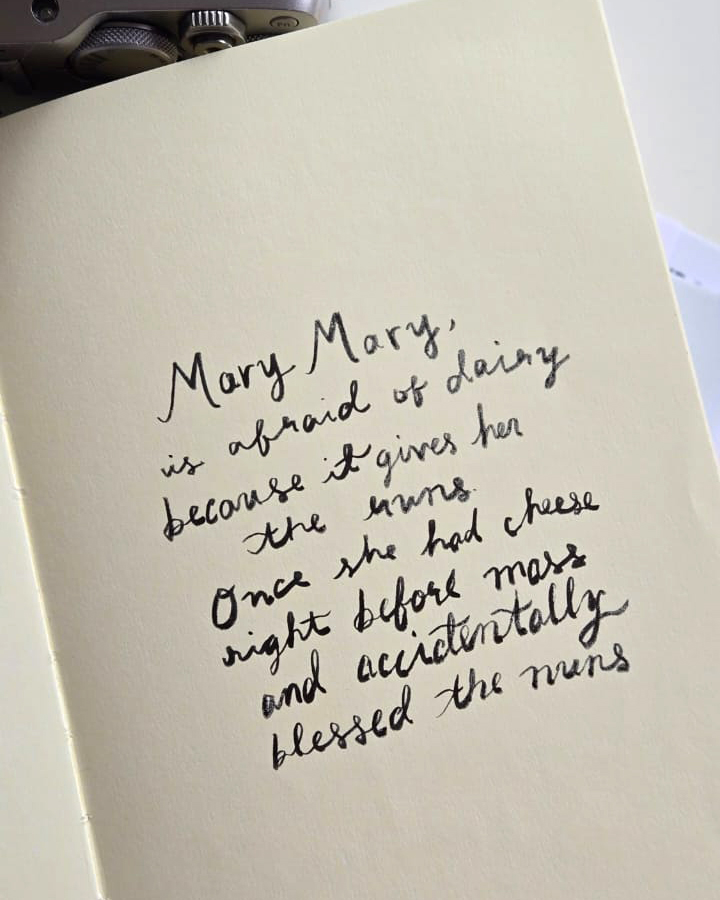 Mary Mary,
is afraid of dairy
because it gives her
the runs.
Once she had cheese
right before mass
and accidentally
blessed the nuns